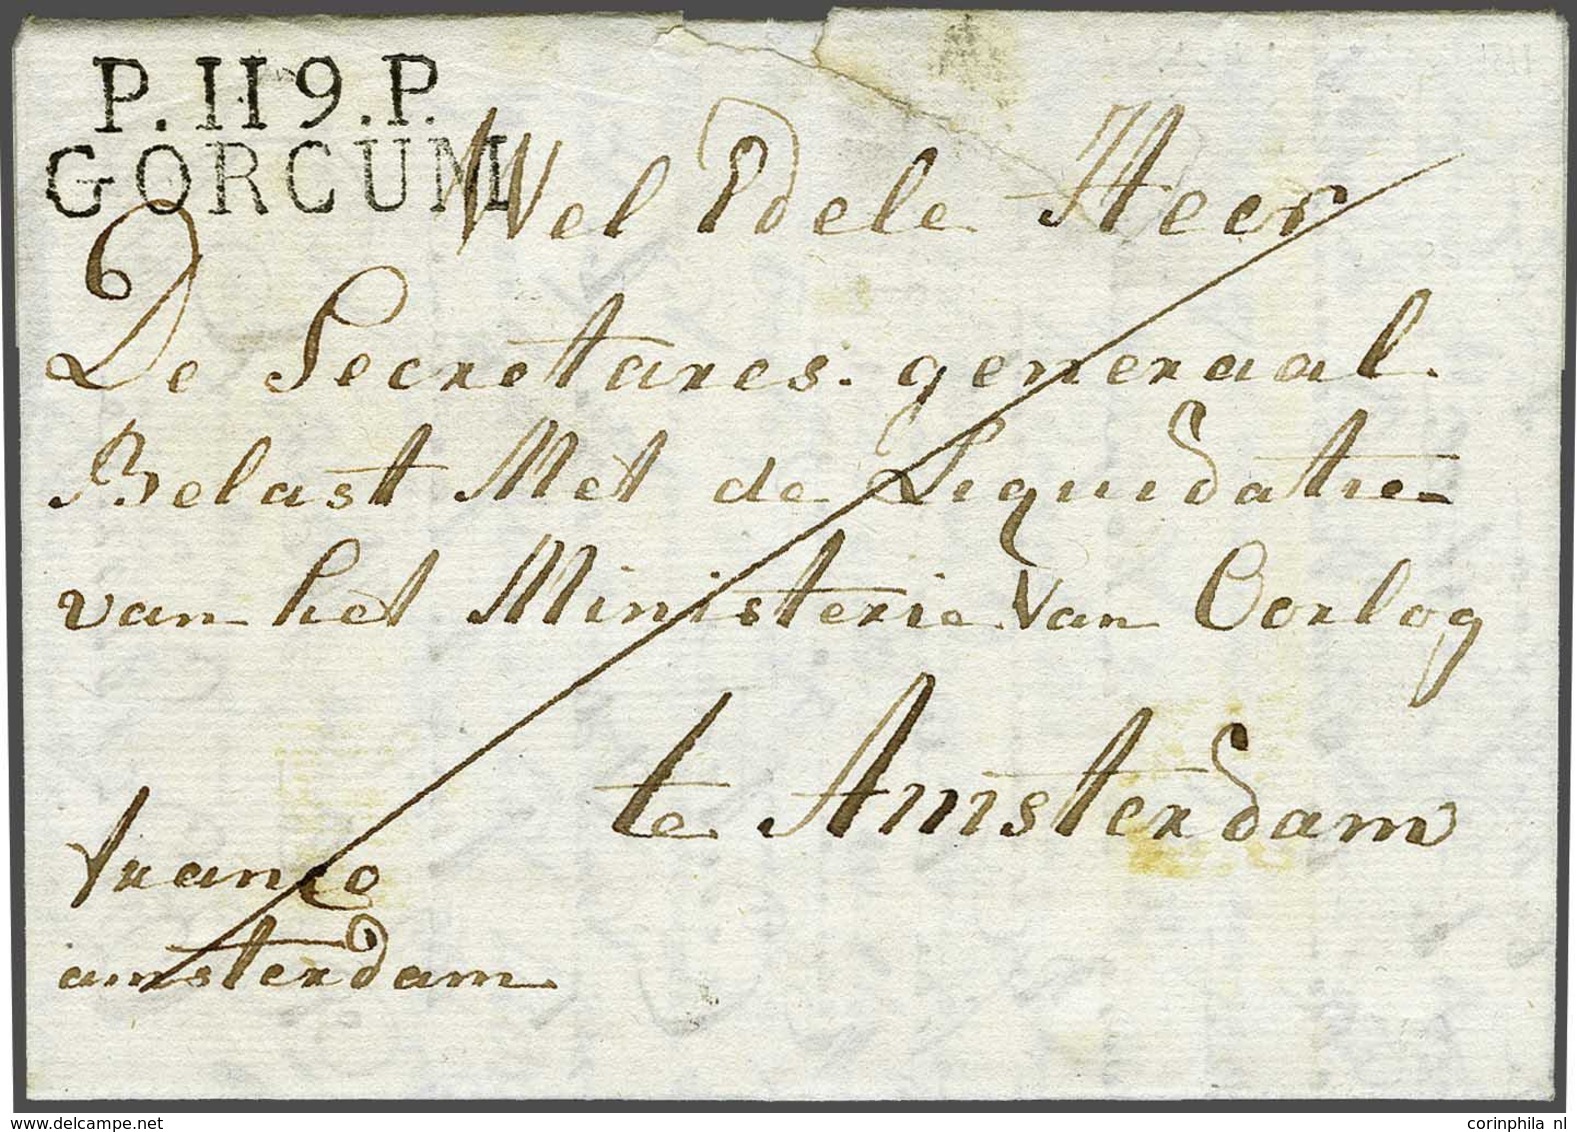 P.119.P.
GORCUM
Wel Edele Heer
De Secretares. generaal.
Belast Met de Liquidatie
van het Ministerie Van Oorlog
te Amsterdam
franco
amsterdam.
corinphila nl